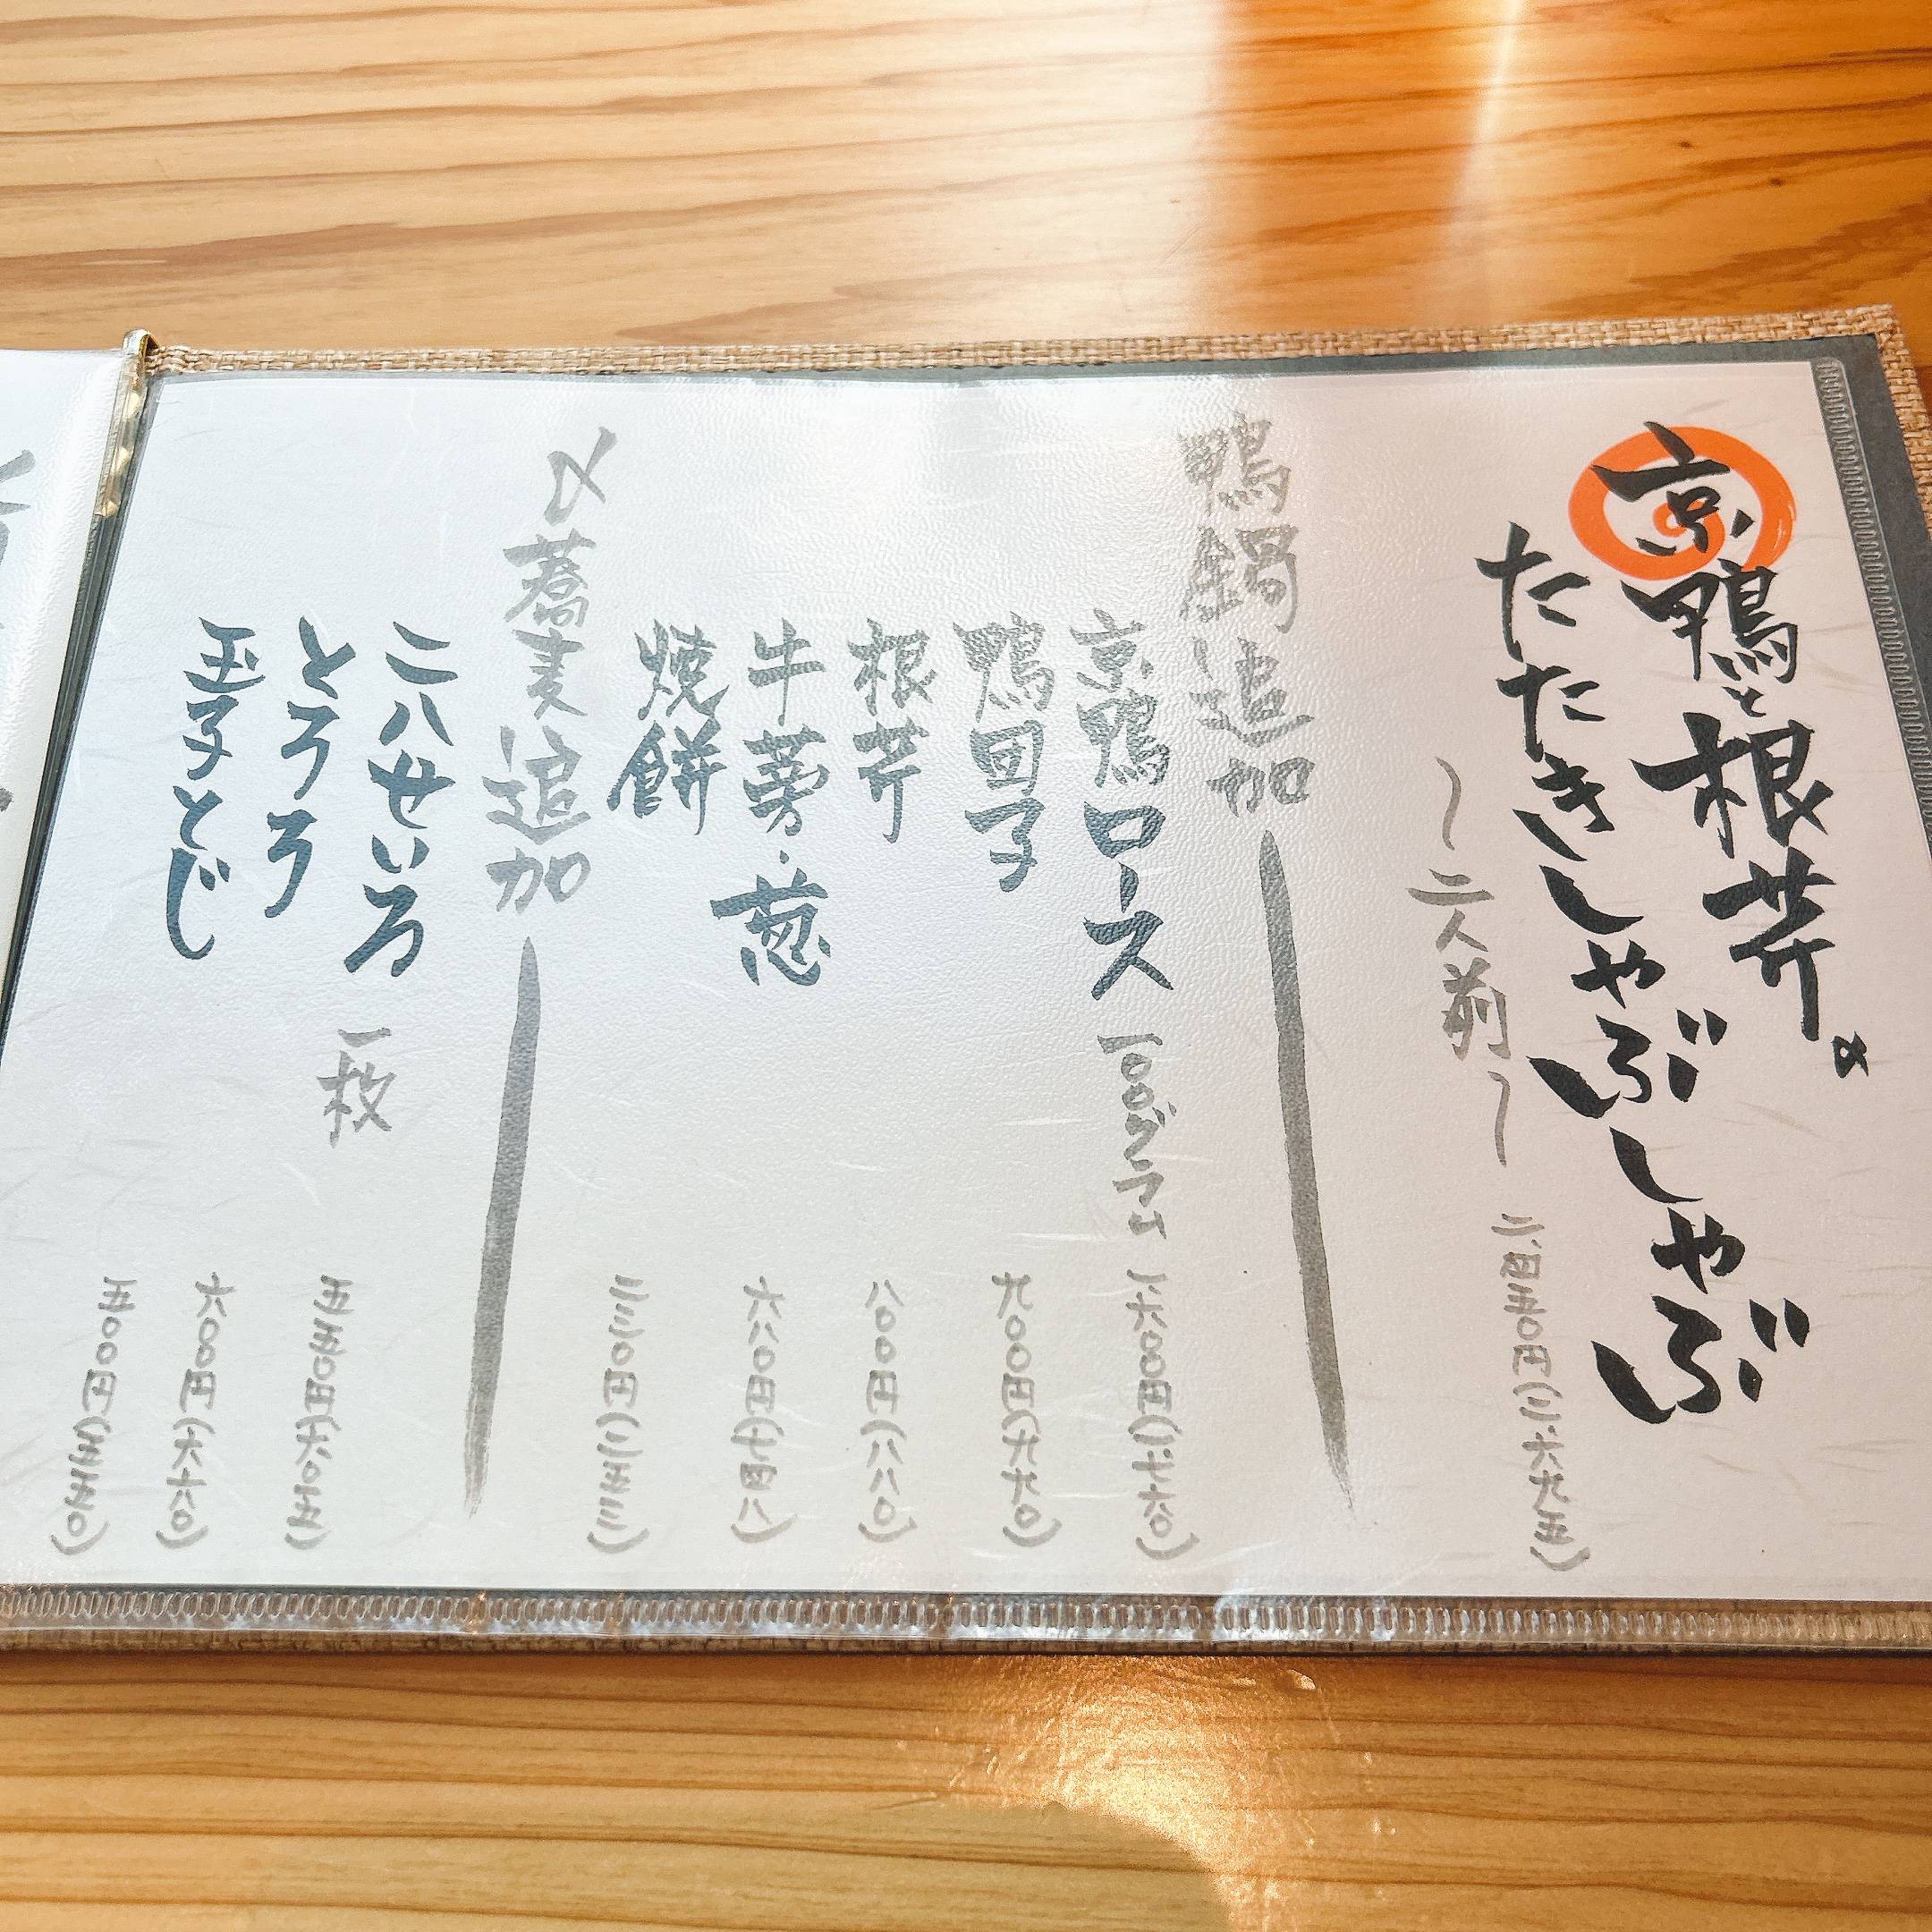 京鴨と根芹の
たたきしゃぶしゃぶ
〜二人前〜 二、四五〇円(二、六九五)
鴨鍋追加
京鴨ロース 一〇〇グラム 一、六〇〇円(一、七六〇)
鴨団子 九〇〇円(九九〇)
根芹 八〇〇円(八八〇)
牛蒡・葱 六八〇円(七四八)
焼餅 二三〇円(二五三)
〆蕎麦追加
二八せいろ 一枚 五五〇円(六〇五)
とろろ 六〇〇円(六六〇)
玉子とじ 五〇〇円(五五〇)